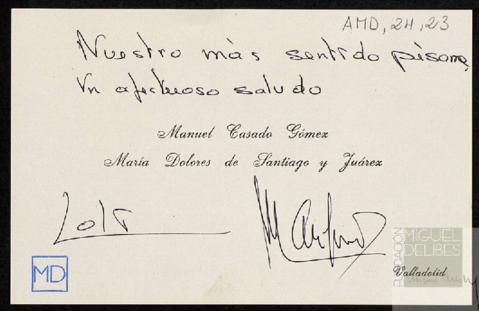 AMD, 24, 23
Nuestro más sentido pésame
Un afectuoso saludo
Manuel Casado Gómez
María Dolores de Santiago y Juárez
Lola
MD
FUNDACIÓN
MIGUEL
DELIBES
Valladolid